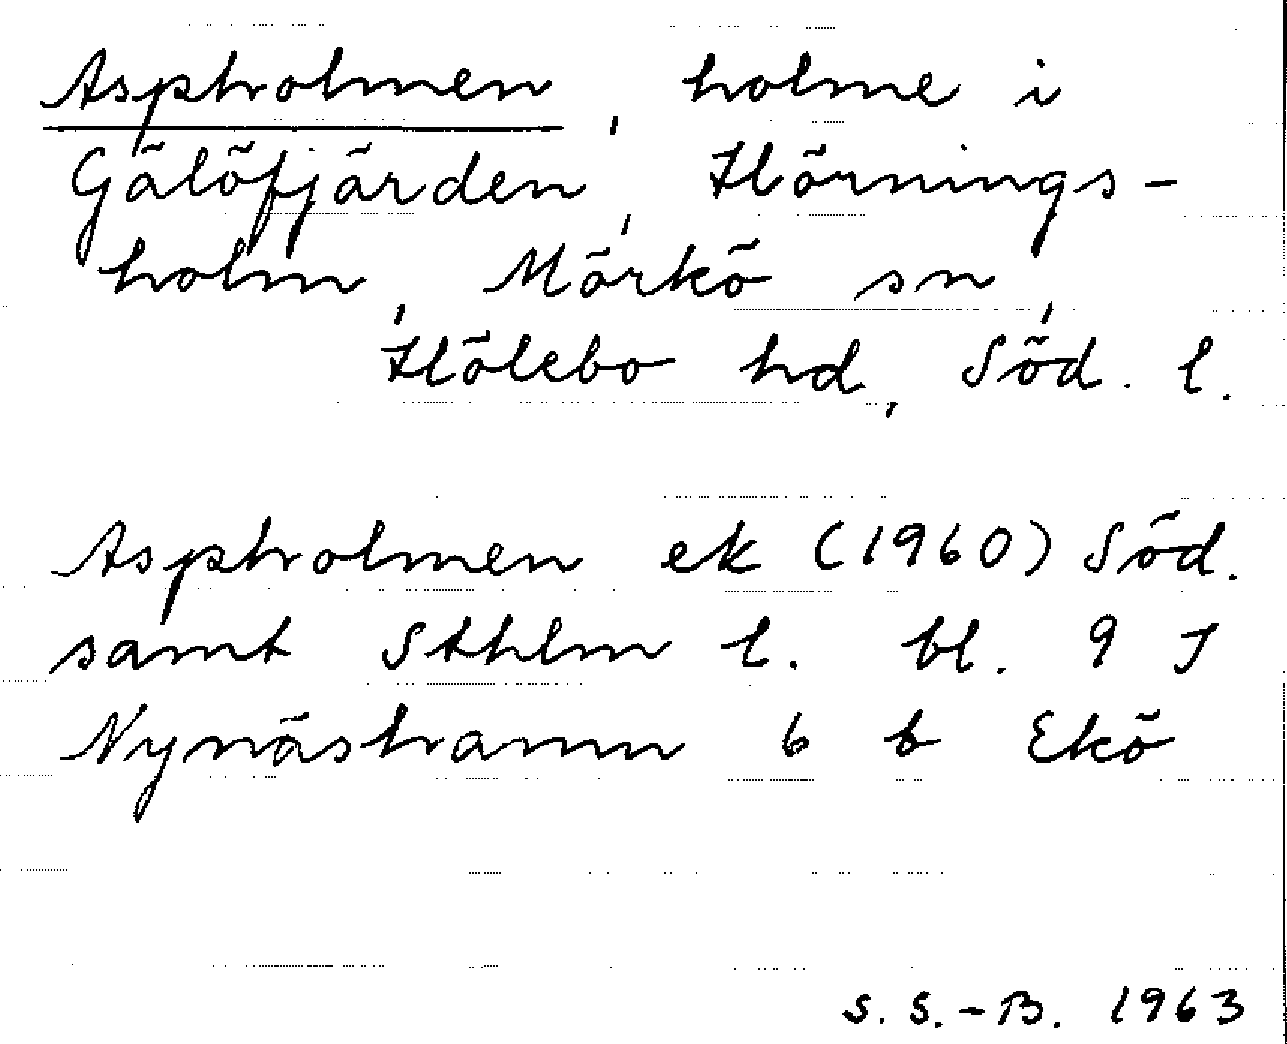 Aspholmen, holme i
Gälöfjärden, Hörnings-
holm, Mörkö sn,
Hölebo hd, Söd. l.
Aspholmen ek (1960) Söd.
samt Sthlm l. bl. 9 J
Nynäshamn 6 b Ekö
S. S.-B. 1963